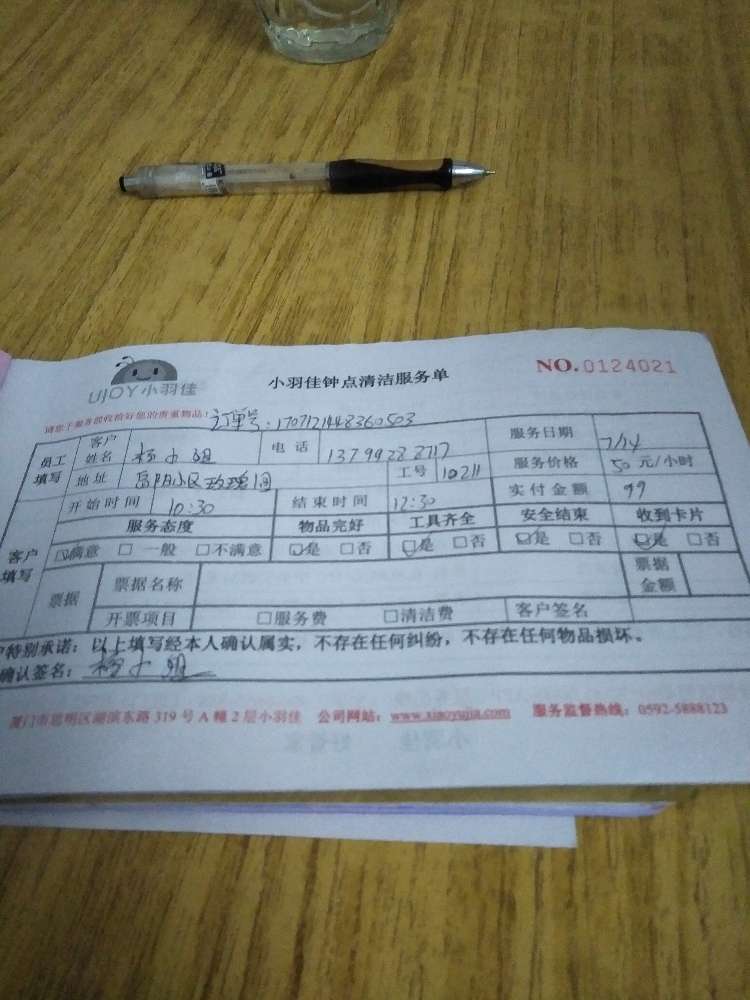 UJOY小羽佳
小羽佳钟点清洁服务单
NO.0124021
请您于服务前收拾好您的贵重物品!
订单号:1707121448360503
员工填写 客户姓名 杨小姐 电话 13799282717 服务日期 7/14
地址 玫瑰园 工号 10211 服务价格 50 元/小时
开始时间 10:30 结束时间 12:30 实付金额 99
客户填写 服务态度 物品完好 工具齐全 安全结束 收到卡片
满意 □ 一般 □不满意 是 □否 是 □否 是 □否 是 □否
票据 票据名称 票据金额
开票项目 □服务费 □清洁费 客户签名
户特别承诺:以上填写经本人确认属实,不存在任何纠纷,不存在任何物品损坏。
确认签名:杨小姐
厦门市思明区湖滨东路 319 号 A 幢 2 层小羽佳 公司网站:www.xiaoyujia.com 服务监督热线:0592-5888123